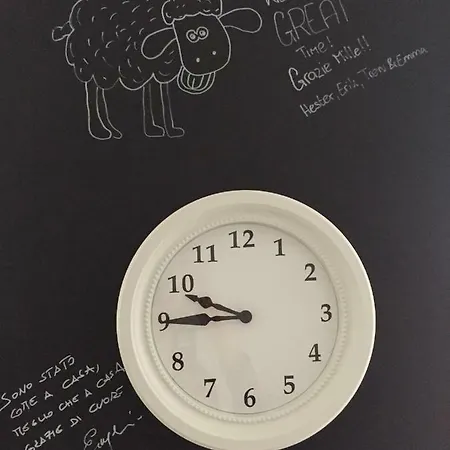 GREAT
Time!
Grazie Mille!!
Hester, Erik, Tom & Emma
12
11 1
10 2
9 3
8 4
7 5
6
SONO STATO
COME A CASA,
MEGLIO CHE A CASA
GRAZIE DI CUORE